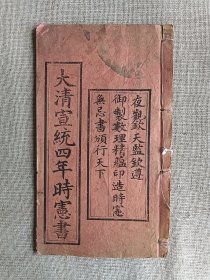 大清宣統四年時憲書
夜觀欽天監欽遵
御製數理精蘊印造時憲
無忌書頒行天下